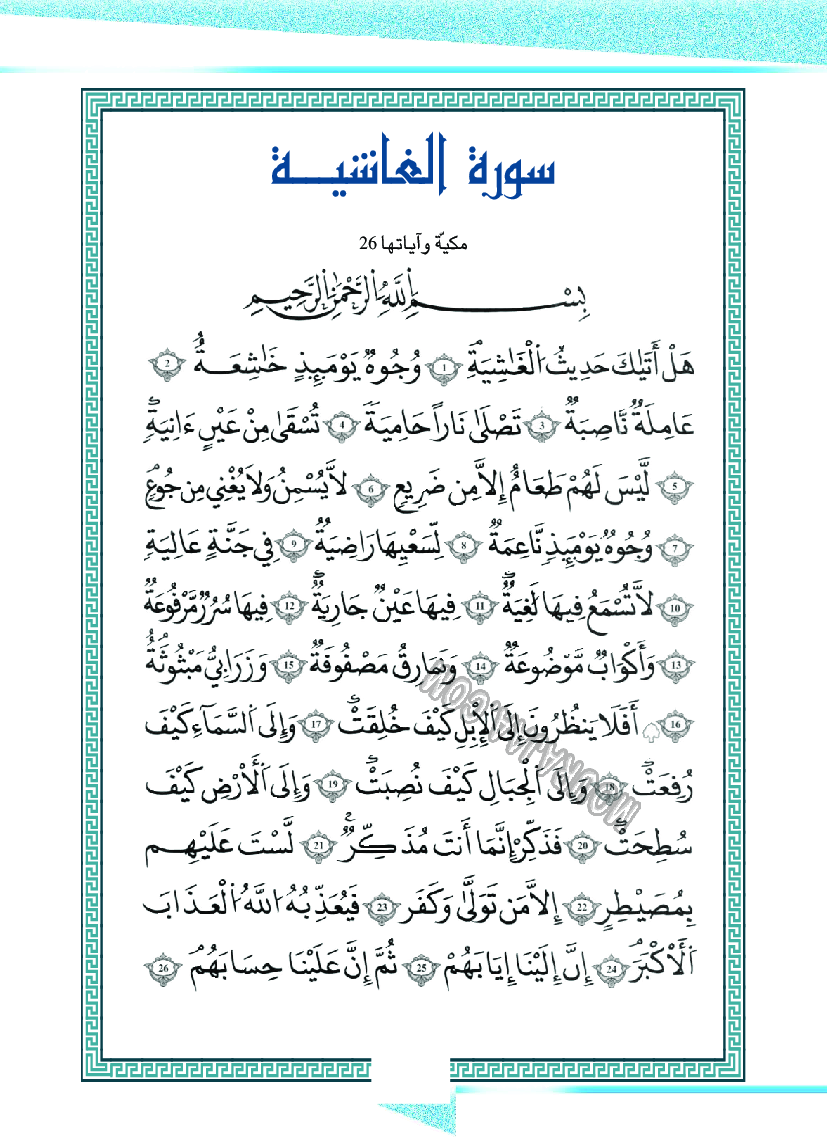 سورة الغاشيـــة
مكيّة وآياتها 26
بِسْمِ اِللَّهِ اِلرَّحْمَٰنِ اِلرَّحِيمِ
هَلْ أَتَيٰكَ حَدِيثُ اُلْغَٰشِيَةِ 1 وُجُوهٌ يَوْمَئِذٍ خَٰشِعَةٌ 2
عَامِلَةٌ نَّاصِبَةٌ 3 تَصْلَىٰ نَاراً حَامِيَةً 4 تُسْقَىٰ مِنْ عَيْنٍ ءَانِيَةٍ
5 لَّيْسَ لَهُمْ طَعَامٌ إِلاَّ مِن ضَرِيعٍ 6 لاَّ يُسْمِنُ وَلاَ يُغْنِي مِن جُوعٍ
7 وُجُوهٌ يَوْمَئِذٍ نَّاعِمَةٌ 8 لِّسَعْيِهَا رَاضِيَةٌ 9 فِي جَنَّةٍ عَالِيَةٍ
10 لاَّ تُسْمَعُ فِيهَا لَٰغِيَةٌ 11 فِيهَا عَيْنٌ جَارِيَةٌ 12 فِيهَا سُرُرٌ مَّرْفُوعَةٌ
13 وَأَكْوَابٌ مَّوْضُوعَةٌ 14 وَنَمَارِقُ مَصْفُوفَةٌ 15 وَزَرَابِيُّ مَبْثُوثَةٌ
16 أَفَلَا يَنظُرُونَ إِلَى اَلْإِبِلِ كَيْفَ خُلِقَتْ 17 وَإِلَى اَلسَّمَآءِ كَيْفَ
رُفِعَتْ 18 وَإِلَى اَلْجِبَالِ كَيْفَ نُصِبَتْ 19 وَإِلَى اَلْأَرْضِ كَيْفَ
سُطِحَتْ 20 فَذَكِّرْ إِنَّمَا أَنتَ مُذَكِّرٌ 21 لَّسْتَ عَلَيْهِم
بِمُصَيْطِرٍ 22 إِلاَّ مَن تَوَلَّىٰ وَكَفَرَ 23 فَيُعَذِّبُهُ اُللَّهُ اُلْعَذَابَ
اَلْأَكْبَرَ 24 إِنَّ إِلَيْنَا إِيَابَهُمْ 25 ثُمَّ إِنَّ عَلَيْنَا حِسَابَهُمْ 26